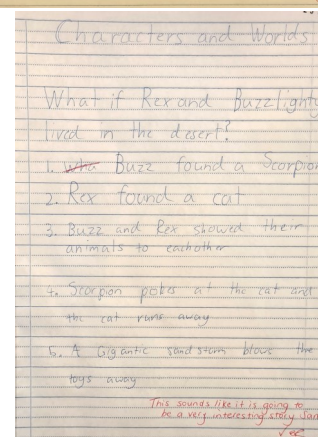 Characters and Worlds
What if Rex and Buzz Lighty
lived in the desert?
1. Who Buzz found a Scorpion
2. Rex found a cat
3. Buzz and Rex showed their
animals to eachother
4. Scorpion pokes at the cat and
the cat runs away
5. A Gigantic sand storm blows the
toys away
This sounds like it is going to
be a very interesting story